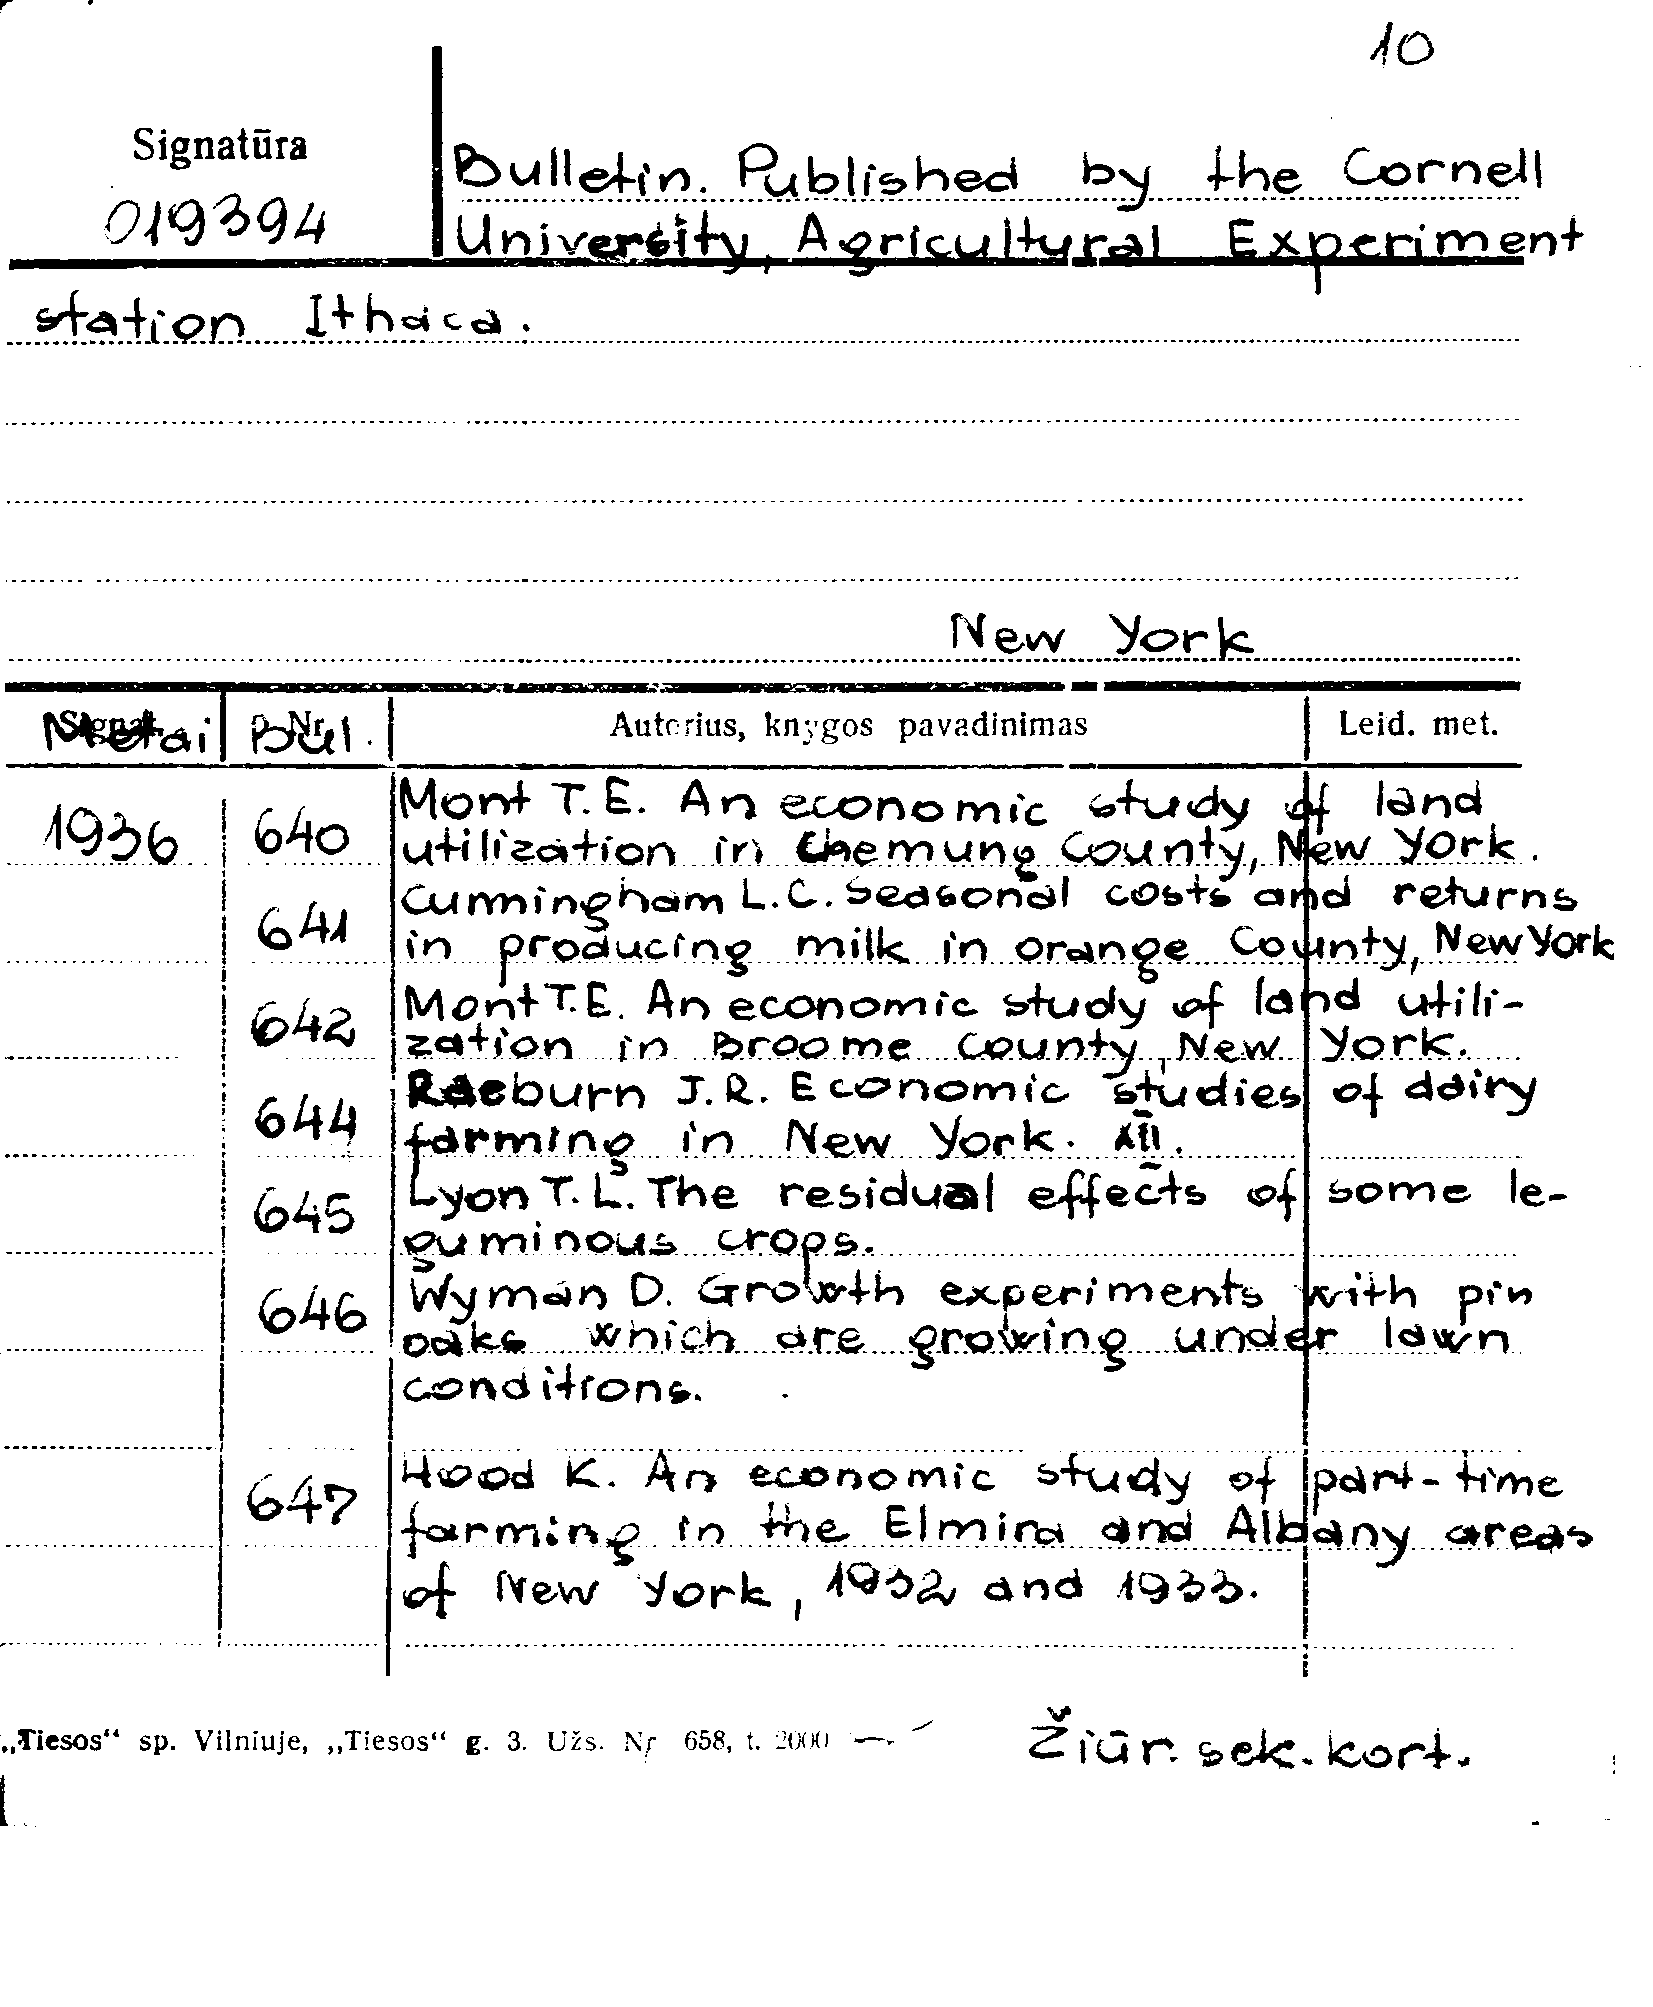 10
Signatūra
019394
Bulletin. Published by the Cornell
University, Agricultural Experiment
station Ithaca.
New York
Metai Bul. Autorius, knygos pavadinimas Leid. met.
1936 640 Mont T.E. An economic study of land
utilization in Chemung County, New York.
641 Cunningham L.C. Seasonal costs and returns
in producing milk in orange County, New York
642 Mont T.E. An economic study of land utili-
zation in Broome County, New York.
644 Raeburn J.R. Economic studies of dairy
farming in New York. XII.
645 Lyon T.L. The residual effects of some le-
guminous crops.
646 Wyman D. Growth experiments with pin
oaks which are growing under lawn
conditions.
647 Hood K. An economic study of part-time
farming in the Elmira and Albany areas
of New York, 1932 and 1933.
„Tiesos“ sp. Vilniuje, „Tiesos“ g. 3. Užs. Nr 658, t. 2000
Žiūr. sek. kort.